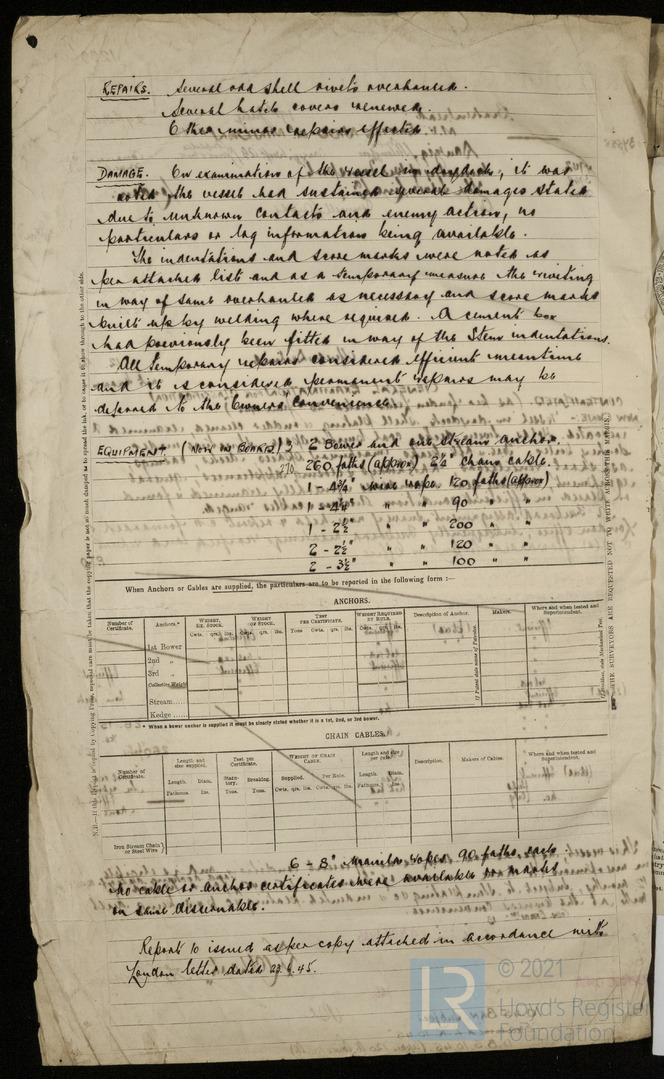 REPAIRS. Several odd shell rivets overhauled.
Several hatch covers renewed.
Other minor repairs effected.
DAMAGE. On examination of the vessel in drydock, it was
noted the vessel had sustained several damages stated
due to unknown contacts and enemy action, no
particulars or log information being available.
The indentations and score marks were noted as
per attached list and as a temporary measure the riveting
in way of same overhauled as necessary and score marks
built up by welding where required. A cement box
had previously been fitted in way of the Stem indentations.
All temporary repairs considered efficient meantime
and it is considered permanent repairs may be
deferred to the Owners' convenience.
EQUIPMENT (NOW ON BOARD) 2 Bower and one Stream anchor.
270 260 faths (approx) 2 1/16" chain cable.
1 - 4 3/4" wire rope 120 faths (approx)
1 - 4 1/4" " " 90 " "
1 - 2 1/2" " " 200 " "
2 - 2 1/2" " " 120 " "
2 - 3 1/2" " " 100 " "
When Anchors or Cables are supplied, the particulars are to be reported in the following form :—
ANCHORS.
Number of Certificate. Anchors.* WEIGHT, EX. STOCK. WEIGHT OF STOCK. TEST PER CERTIFICATE. WEIGHT REQUIRED BY RULE. Description of Anchor. Makers. Where and when tested and Superintendent.
Cwts. qrs. lbs. Cwts. qrs. lbs. Tons Cwt. qrs. lbs. Cwts. qrs. lbs.
1st Bower
2nd "
3rd "
Collective Weight
Stream
Kedge
* When a bower anchor is supplied it must be clearly stated whether it is a 1st, 2nd, or 3rd bower.
CHAIN CABLES.
Number of Certificate. Length and size supplied. Test per Certificate. WEIGHT OF CHAIN CABLE. Length and size per rule. Description. Makers of Cables. Where and when tested and Superintendent.
Length. Diam. Statutory. Breaking. Supplied. Per Rule. Length. Diam.
Fathoms. Ins. Tons. Tons. Cwts. qrs. lbs. Cwts. qrs. lbs. Fathoms. Ins.
Iron Stream Chain or Steel Wire
6 - 8" Manila ropes 90 faths. each
No cable or anchor certificates were available or marks
on same discernable.
Report 10 issued as per copy attached in accordance with
London letter dated 23.6.45.
© 2021
Lloyd's Register
Foundation
LR